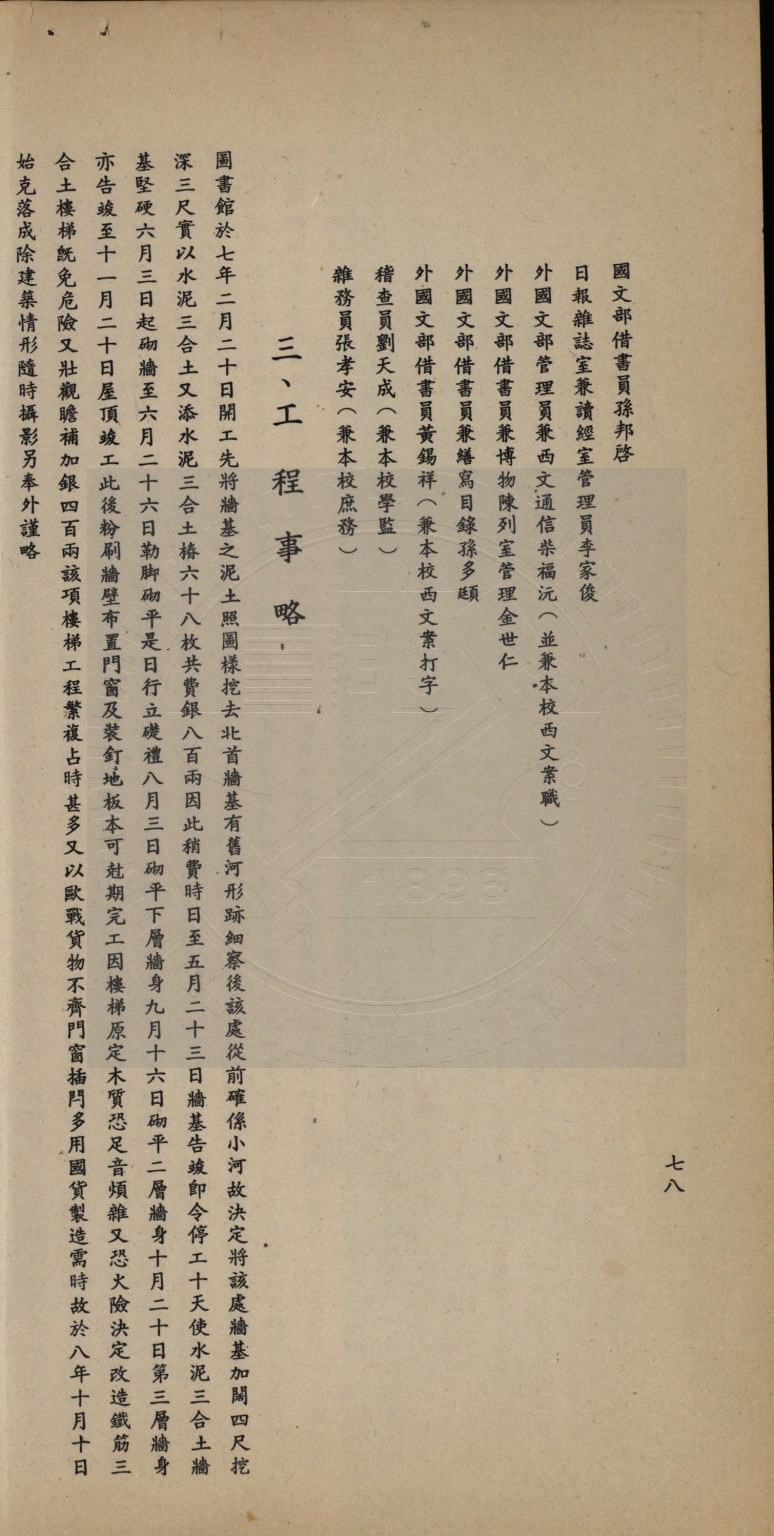 國文部借書員孫邦啓
日報雜誌室兼讀經室管理員李家俊
外國文部管理員兼西文通信柴福沅（並兼本校西文案職）
外國文部借書員兼博物陳列室管理金世仁
外國文部借書員兼繕寫目錄孫多頲
外國文部借書員黃錫祥（兼本校西文案打字）
稽查員劉天成（兼本校學監）
雜務員張孝安（兼本校庶務）
三、工程事略
圖書館於七年二月二十日開工先將牆基之泥土照圖樣挖去北首牆基有舊河形跡細察後該處從前確係小河故決定將該處牆基加闊四尺挖
深三尺實以水泥三合土又添水泥三合土樁六十八枚共費銀八百兩因此稍費時日至五月二十三日牆基告竣即令停工十天使水泥三合土牆
基堅硬六月三日起砌牆至六月二十六日勒脚砌平是日行立礎禮八月三日砌平下層牆身九月十六日砌平二層牆身十月二十日第三層牆身
亦告竣至十一月二十日屋頂竣工此後粉刷牆壁布置門窗及裝釘地板本可尅期完工因樓梯原定木質恐足音煩雜又恐火險決定改造鐵筋三
合土樓梯既免危險又壯觀瞻補加銀四百兩該項樓梯工程繁複占時甚多又以歐戰貨物不齊門窗插閂多用國貨製造需時故於八年十月十日
始克落成除建築情形隨時攝影另奉外謹略
七八
1896